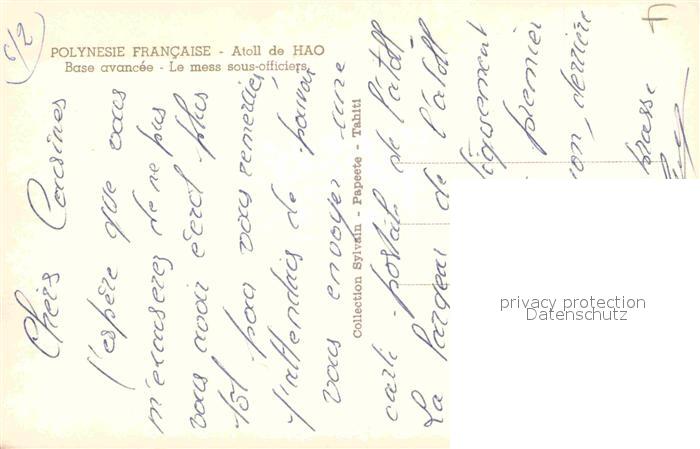 6/2
POLYNESIE FRANÇAISE - Atoll de HAO
Base avancée - Le mess sous-officiers
Collection Sylvain - Papeete - Tahiti
Chers Cousines
J'espère que vous
m'excuserez de ne plus
vous avoir écrit plus
tôt pour vous remercier
J'attendais de pouvoir
vous envoyer une
carte postale de l'atoll
La largeur de l'atoll
premier
derrière
privacy protection
Datenschutz